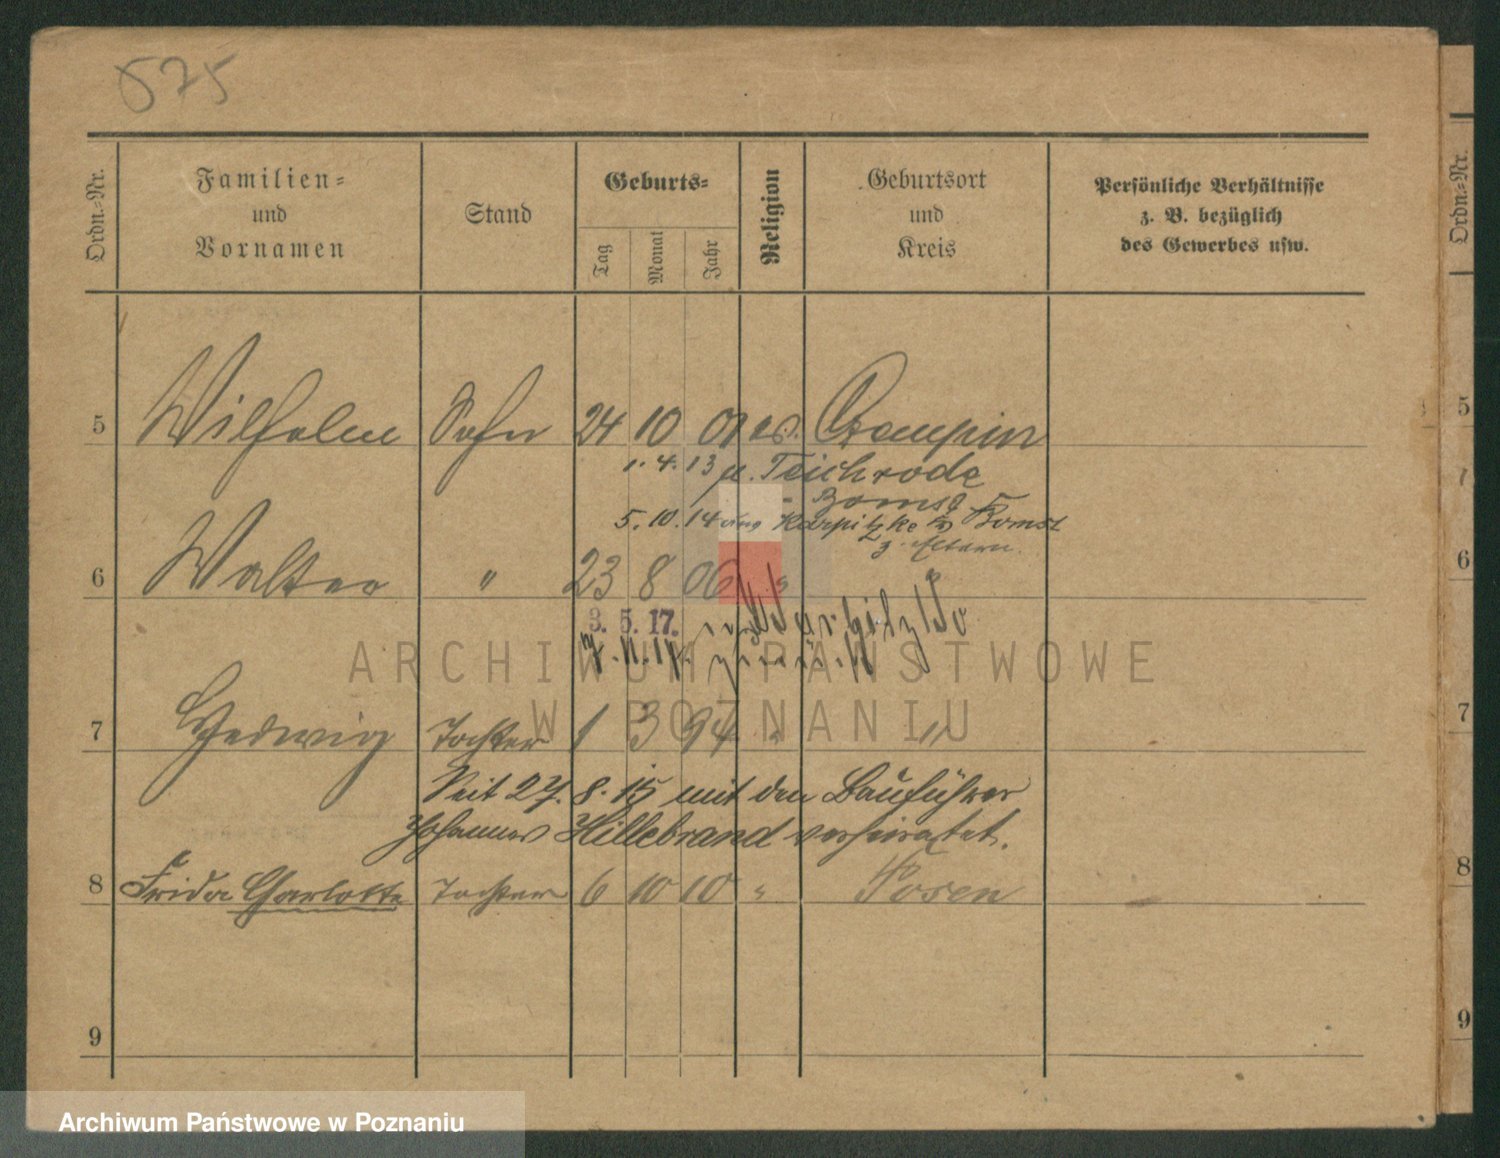 575
Ordn.=Nr.
Familien=
und
Vornamen
Stand
Geburts=
Tag
Monat
Jahr
Religion
Geburtsort
und
Kreis
Persönliche Verhältnisse
z. B. bezüglich
des Gewerbes usw.
Ordn.=Nr.
5 Wilhelm Sohn 24 10 01 ev. Czempin 5
1. 4. 13 n. Teichrode
Bomst
5. 10. 14 von Karpitzko Kr. Bomst
z. Eltern.
6 Walter " 23 8 06 " " 6
3. 5. 17. Karpitzko
7. 11. 17. zurück
7 Hedwig Tochter 1 3 94 " " 7
Seit 27. 8. 15 mit den Bauführer
Johannes Hillebrand verheiratet.
8 Frida Charlotte Tochter 6 10 10 " Posen 8
9 9
ARCHIWUM PAŃSTWOWE
W POZNANIU
Archiwum Państwowe w Poznaniu